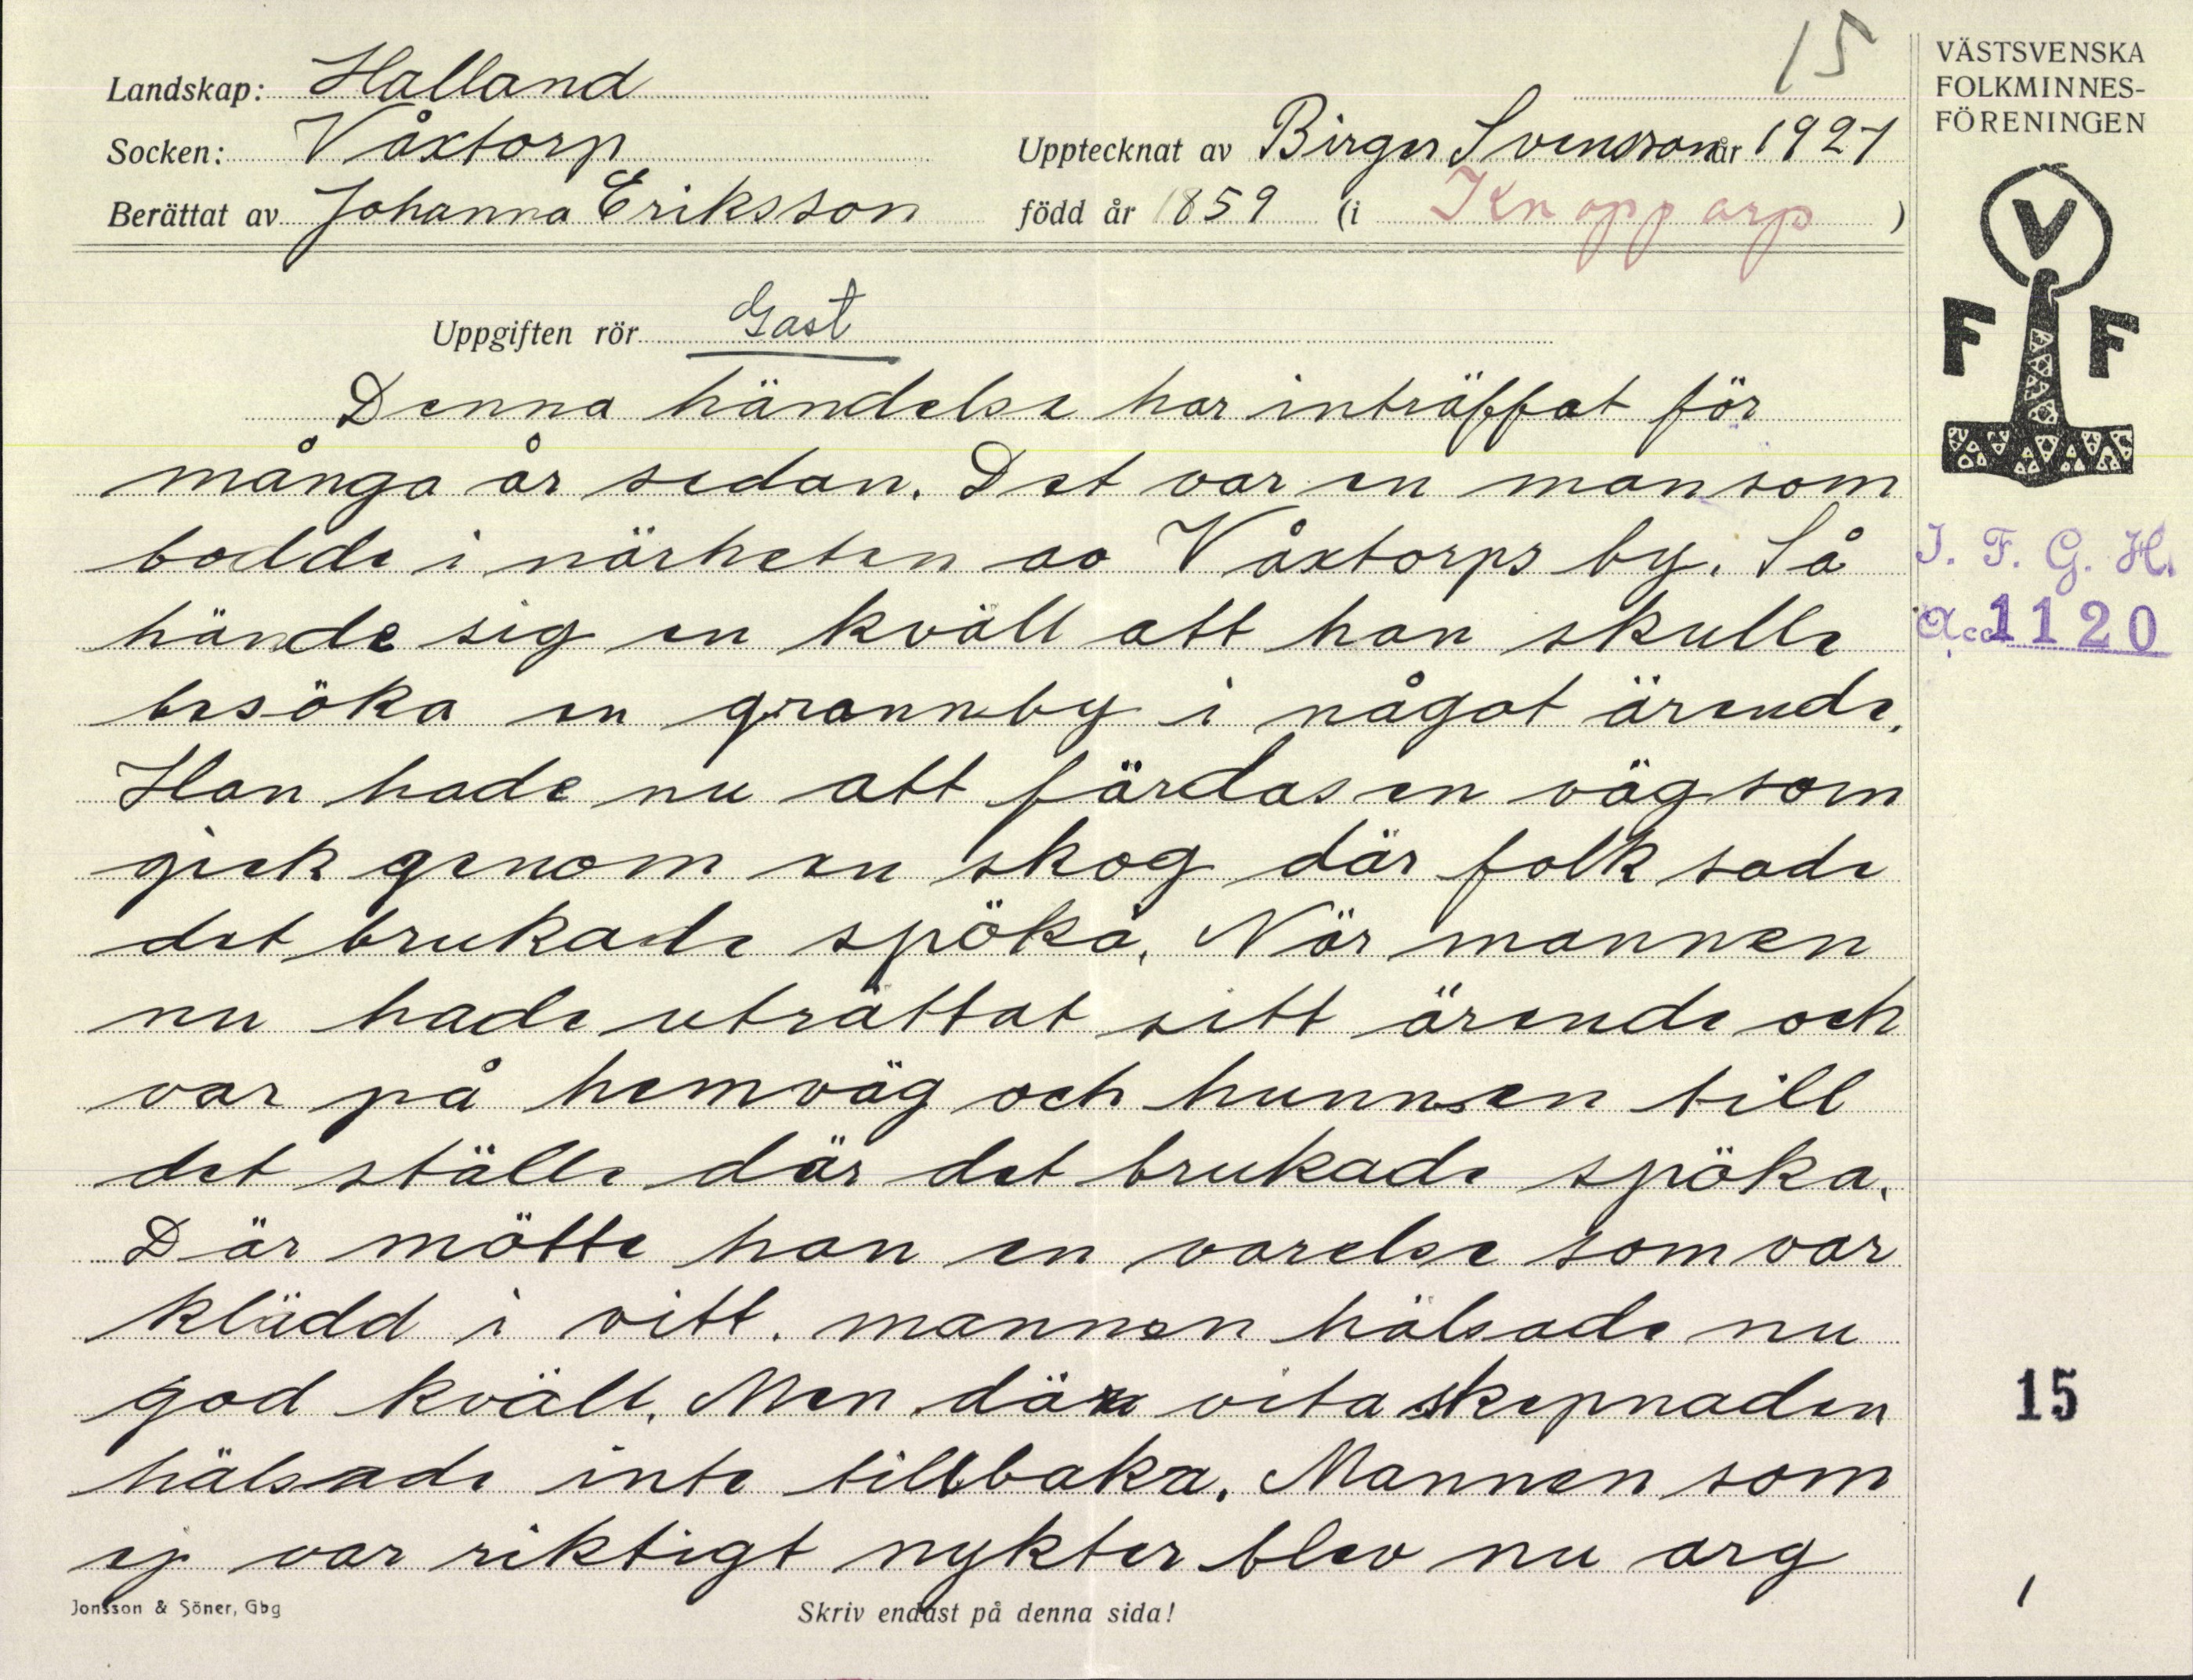 15
Landskap: Halland
Socken: Våxtorp
Upptecknat av Birger Svensson år 1927
Berättat av Johanna Eriksson
född år 1859 (i Knopparp)
VÄSTSVENSKA
FOLKMINNES-
FÖRENINGEN
V
F F
Uppgiften rör Gast
Denna händelse har inträffat för
många år sedan. Det var en man som
bodde i närheten av Våxtorps by. Så
hände sig en kväll att han skulle
besöka en grannby i något ärende.
Han hade nu att färdas en väg som
gick genom en skog där folk sade
det brukade spöka. När mannen
nu hade uträttat sitt ärende och
var på hemväg och hunnen till
det ställe där det brukade spöka.
Där mötte han en varelse som var
klädd i vitt. mannen hälsade nu
god kväll. Men dän vita skepnaden
hälsade inte tillbaka. Mannen som
ej var riktigt nykter blev nu arg
I. F. G. H.
Acc. 1120
15
1
Jonsson & Söner, Gbg
Skriv endast på denna sida!